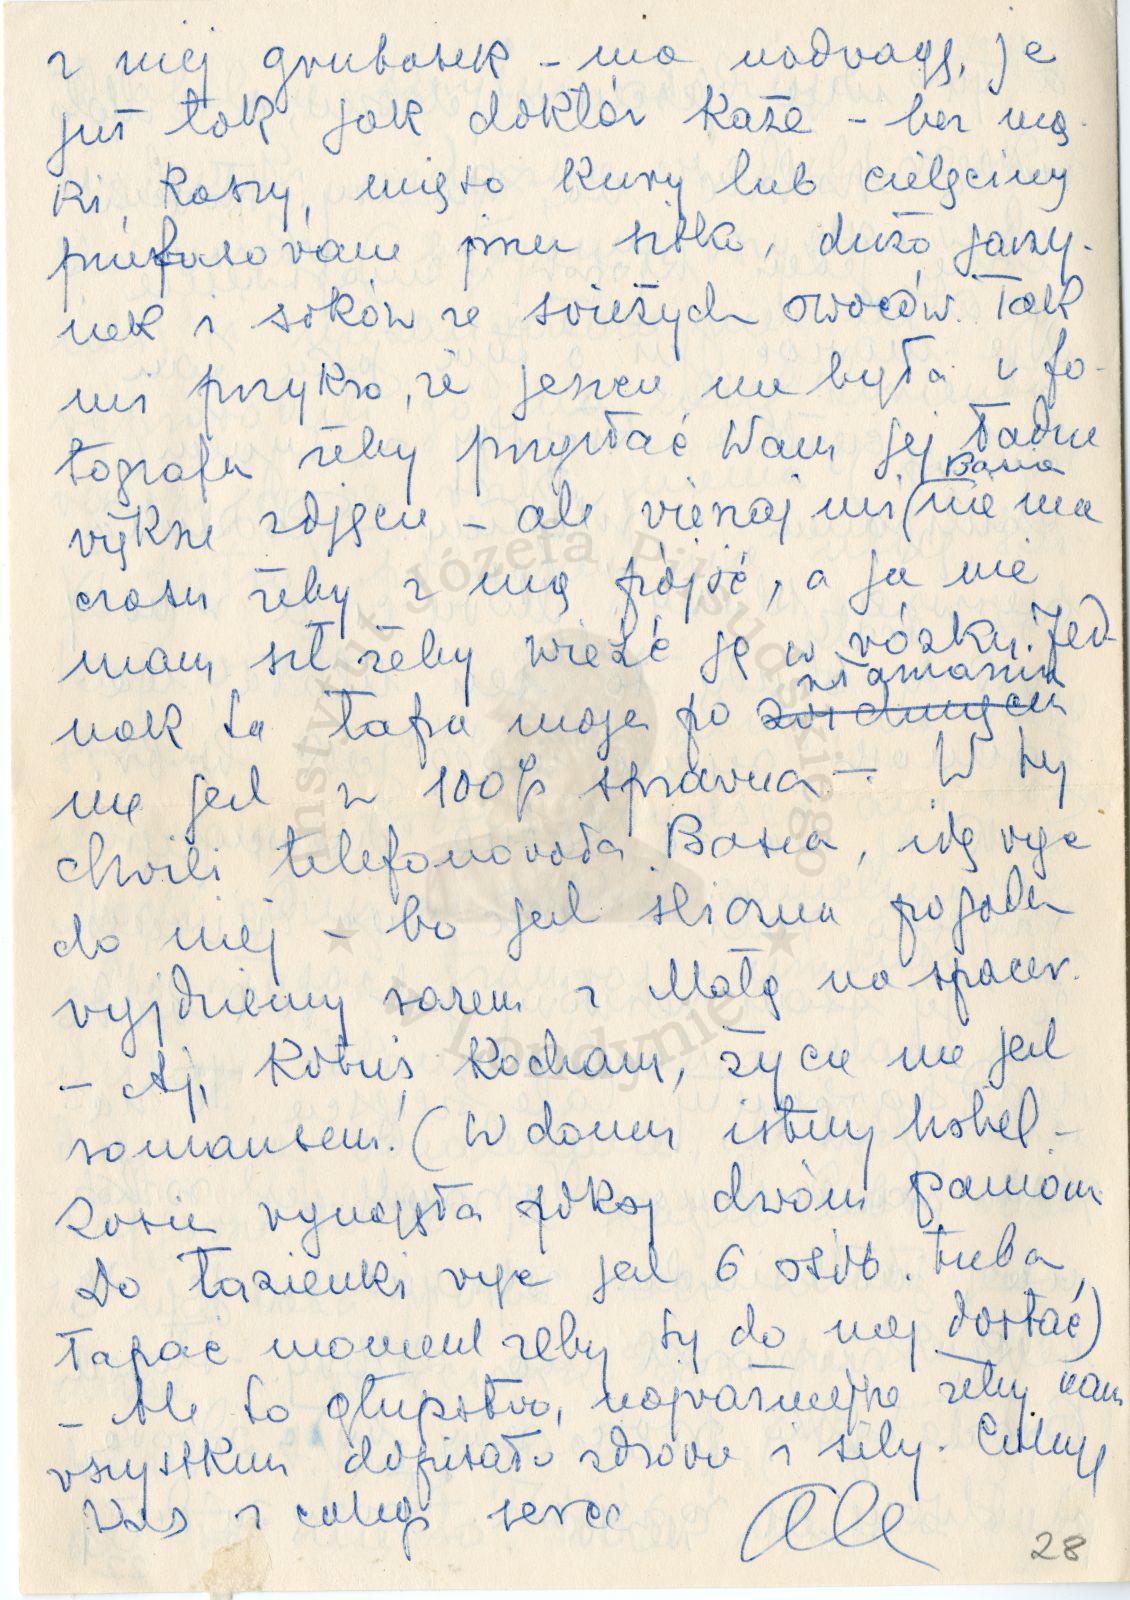 z niej grubasek - ma nadwagę, je
już tak jak doktór każe - bez mą-
ki, kaszy, mięso kury lub cielęciny
przefasowane przez sitko, dużo jarzy-
nek i soków ze świeżych owoców. Tak
mi przykro, że jeszcze nie była u fo-
tografa żeby przysłać Wam jej ładne
większe zdjęcie - ale wieszaj mi (Basia nie ma
czasu żeby z nią pójść, a ja nie
mam sił żeby wieźć ją w wózku. Jed-
nak ta łapa moja po złamaniu
nie jest w 100% sprawna -. W tej
chwili telefonowała Basia, idę więc
do niej - bo jest śliczna pogoda
wyjdziemy razem z Małą na spacer.
- Aj, Kotuś, Kocham, życie nie jest
romansem! (W domu istny hotel -
Zosia wynajęła pokój dwóm paniom
Do łazienki więc jest 6 osób. trzeba
łapać moment żeby się do niej dostać)
- Ale to głupstwo, najważniejsze żeby nam
wszystkim dopisało zdrowie i siły. Całuję
Was z całego serca Ala
28
Instytut Józefa Piłsudskiego
w Londynie